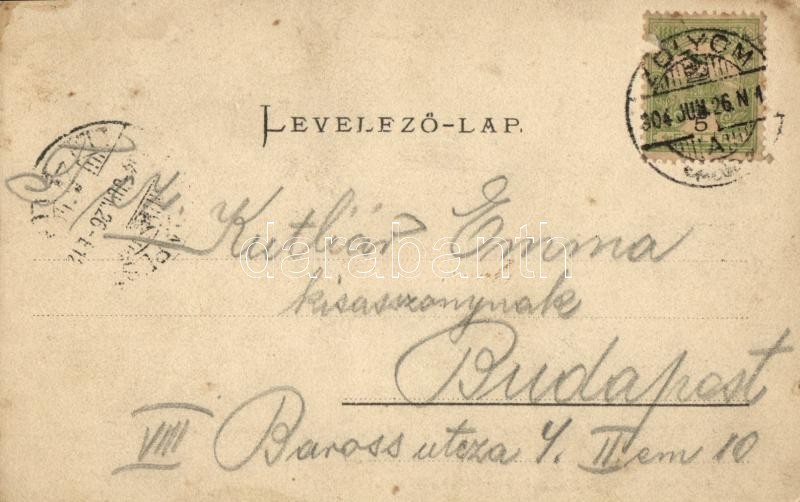 LEVELEZŐ-LAP.
ZÓLYOM
904 JUN. 26. N 1
51
A
Kutliár Emma
kisasszonynak
Budapest
VIII Baross utcza 4. II em 10
darabanth